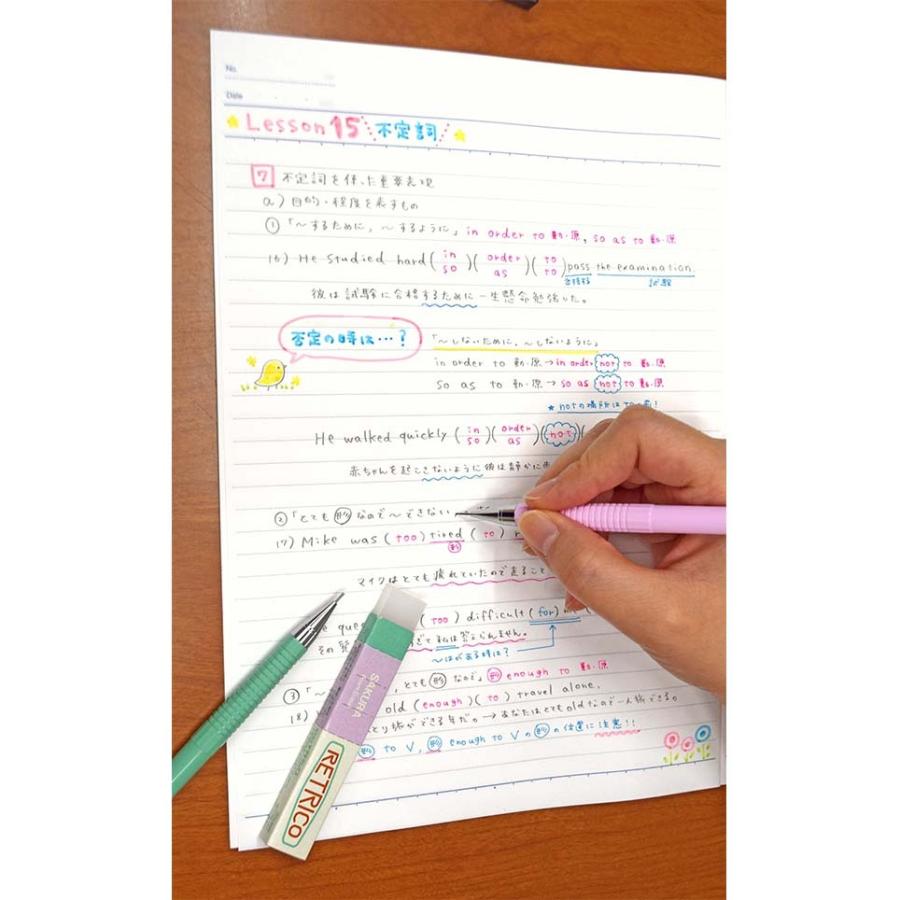 No.
Date
Lesson 15 不定詞
7 不定詞を使った重要表現
a) 目的・程度を表すもの
① 「〜するために, 〜するように」 in order to 動・原, so as to 動・原
16) He studied hard ( in so )( order as )( to to ) pass the examination.
合格する 試験
彼は試験に合格するために一生懸命勉強した。
否定の時は…?
「〜しないために, 〜しないように」
in order to 動・原 → in order not to 動・原
so as to 動・原 → so as not to 動・原
★ notの場所はtoの前!
He walked quickly ( in so )( order as )( not )(
赤ちゃんを起こさないように彼は静かに
② 「とても 形 なので〜できない
17) Mike was ( too ) tired ( to )
形
マイクはとても疲れていたので走ること
que ( too ) difficult ( for )
その 私は答えられません。
〜はがある時は?
③ 「〜 , とても 形 なので」 形 enough to 動・原
18) old ( enough )( to ) travel alone.
とり旅ができる年だ。→ あなたはとてもoldなので一人旅できる。
形 to V, 形 enough to V の 形 の位置に注意!!
SAKURA
RETRICO